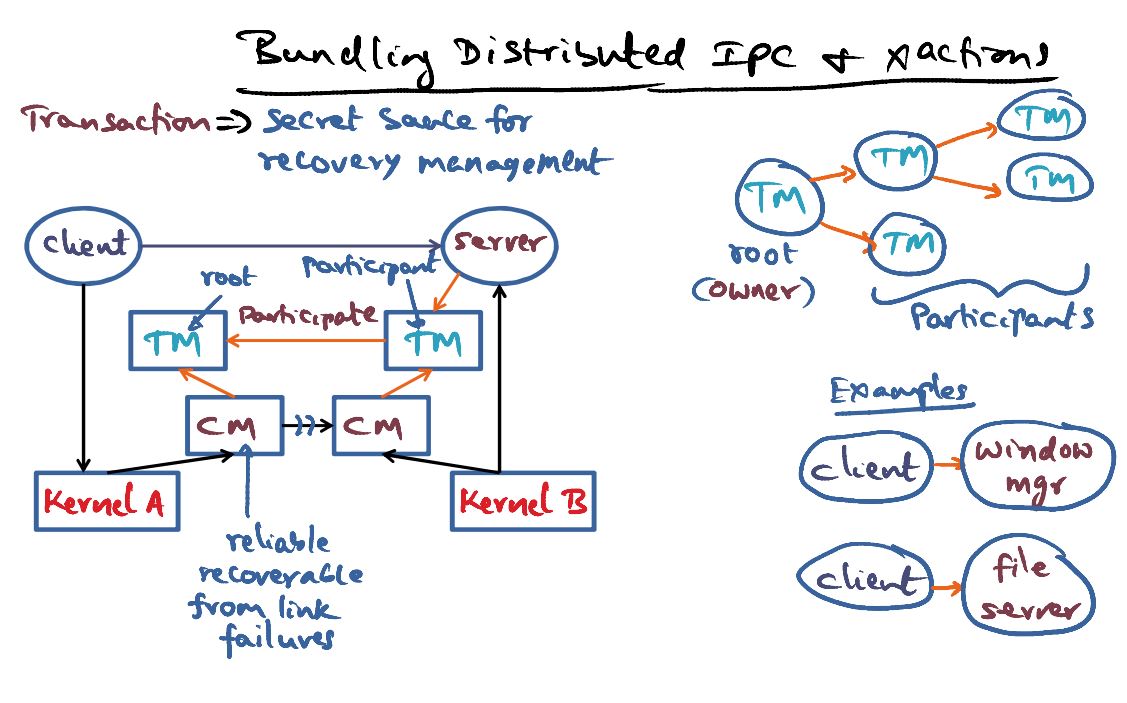 Bundling Distributed IPC & xactions
Transaction => secret sauce for
recovery management
client
server
root
participant
Participate
TM
TM
CM
CM
Kernel A
Kernel B
reliable
recoverable
from link
failures
TM
TM
TM
TM
TM
root
(owner)
Participants
Examples
client
window
mgr
client
file
server